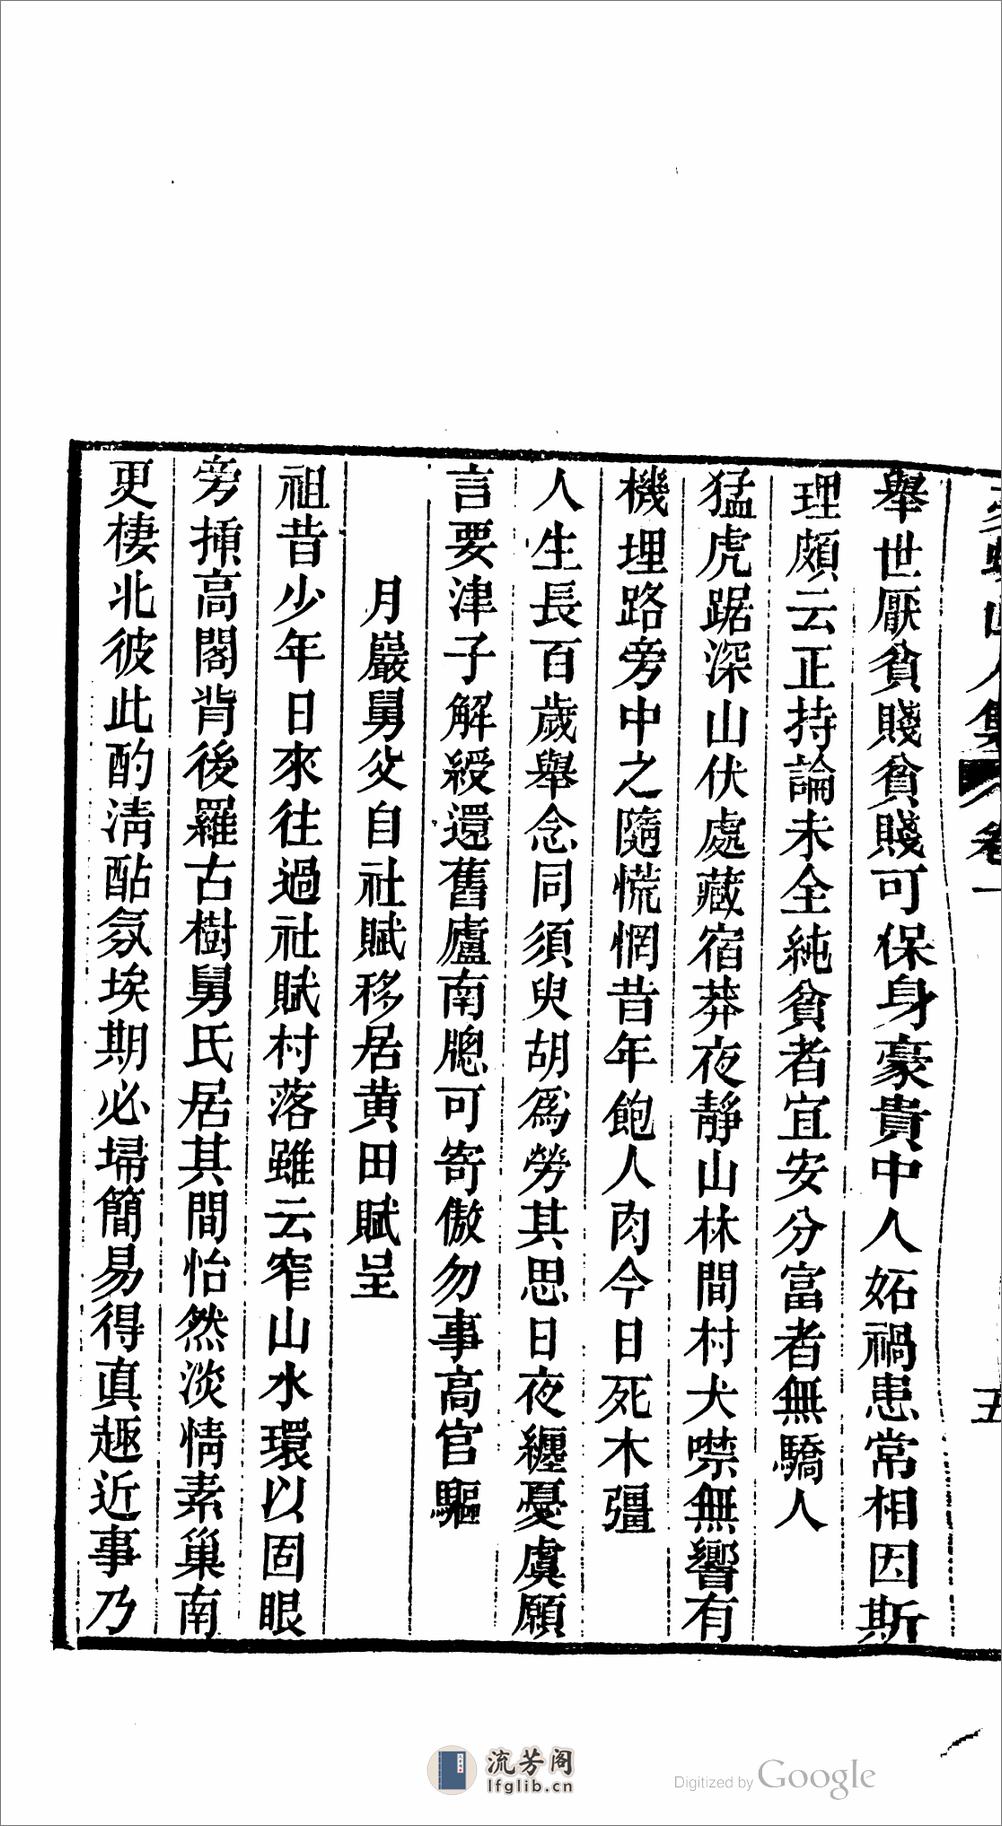 山人集 卷一 五
舉世厭貧賤貧賤可保身豪貴中人妬禍患常相因斯
理頗云正持論未全純貧者宜安分富者無驕人
猛虎踞深山伏處藏宿莽夜靜山林間村犬噤無響有
機埋路旁中之隨慌惘昔年飽人肉今日死木彊
人生長百歲舉念同須臾胡爲勞其思日夜纏憂虞願
言要津子解綬還舊廬南牕可寄傲勿事高官驅
月巖舅父自社賦移居黄田賦呈
祖昔少年日來往過社賦村落雖云窄山水環以固眼
旁揷高閣背後羅古樹舅氏居其間怡然淡情素巢南
更棲北彼此酌淸酤氛埃期必埽簡易得眞趣近事乃
流芳阁
lfglib.cn
Digitized by Google